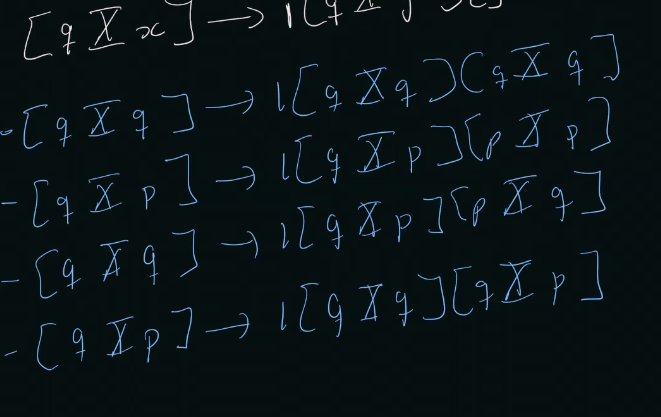 [q X x] → 1[q X
- [q X q] → 1[q X q][q X q]
- [q X p] → 1[q X p][p X p]
- [q X q] → 1[q X p][p X q]
- [q X p] → 1[q X q][q X p]